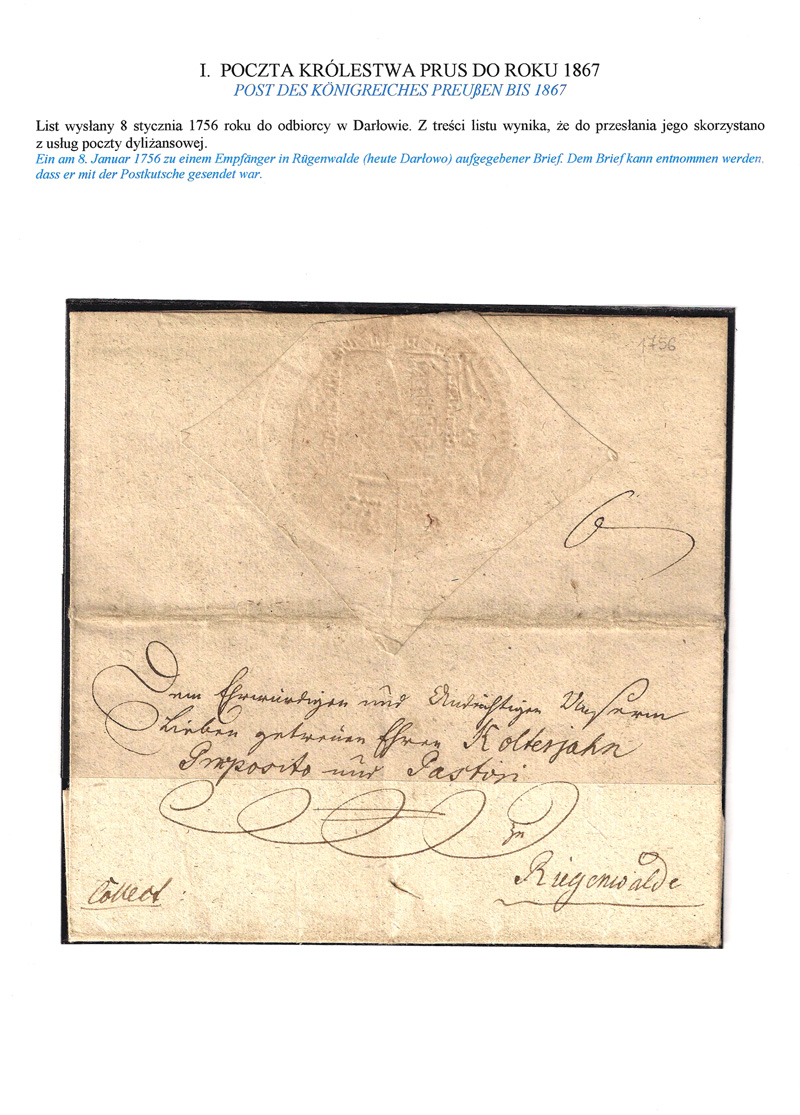 I. POCZTA KRÓLESTWA PRUS DO ROKU 1867
POST DES KÖNIGREICHES PREUßEN BIS 1867
List wysłany 8 stycznia 1756 roku do odbiorcy w Darłowie. Z treści listu wynika, że do przesłania jego skorzystano
z usług poczty dyliżansowej.
Ein am 8. Januar 1756 zu einem Empfänger in Rügenwalde (heute Darłowo) aufgegebener Brief. Dem Brief kann entnommen werden,
dass er mit der Postkutsche gesendet war.
1756
6
Dem Ehrwürdigen und Andächtigen Unserm
Lieben getreuen Ehren Kolterjahn
Præposito und Pastori
zu
Rügenwalde
Collect